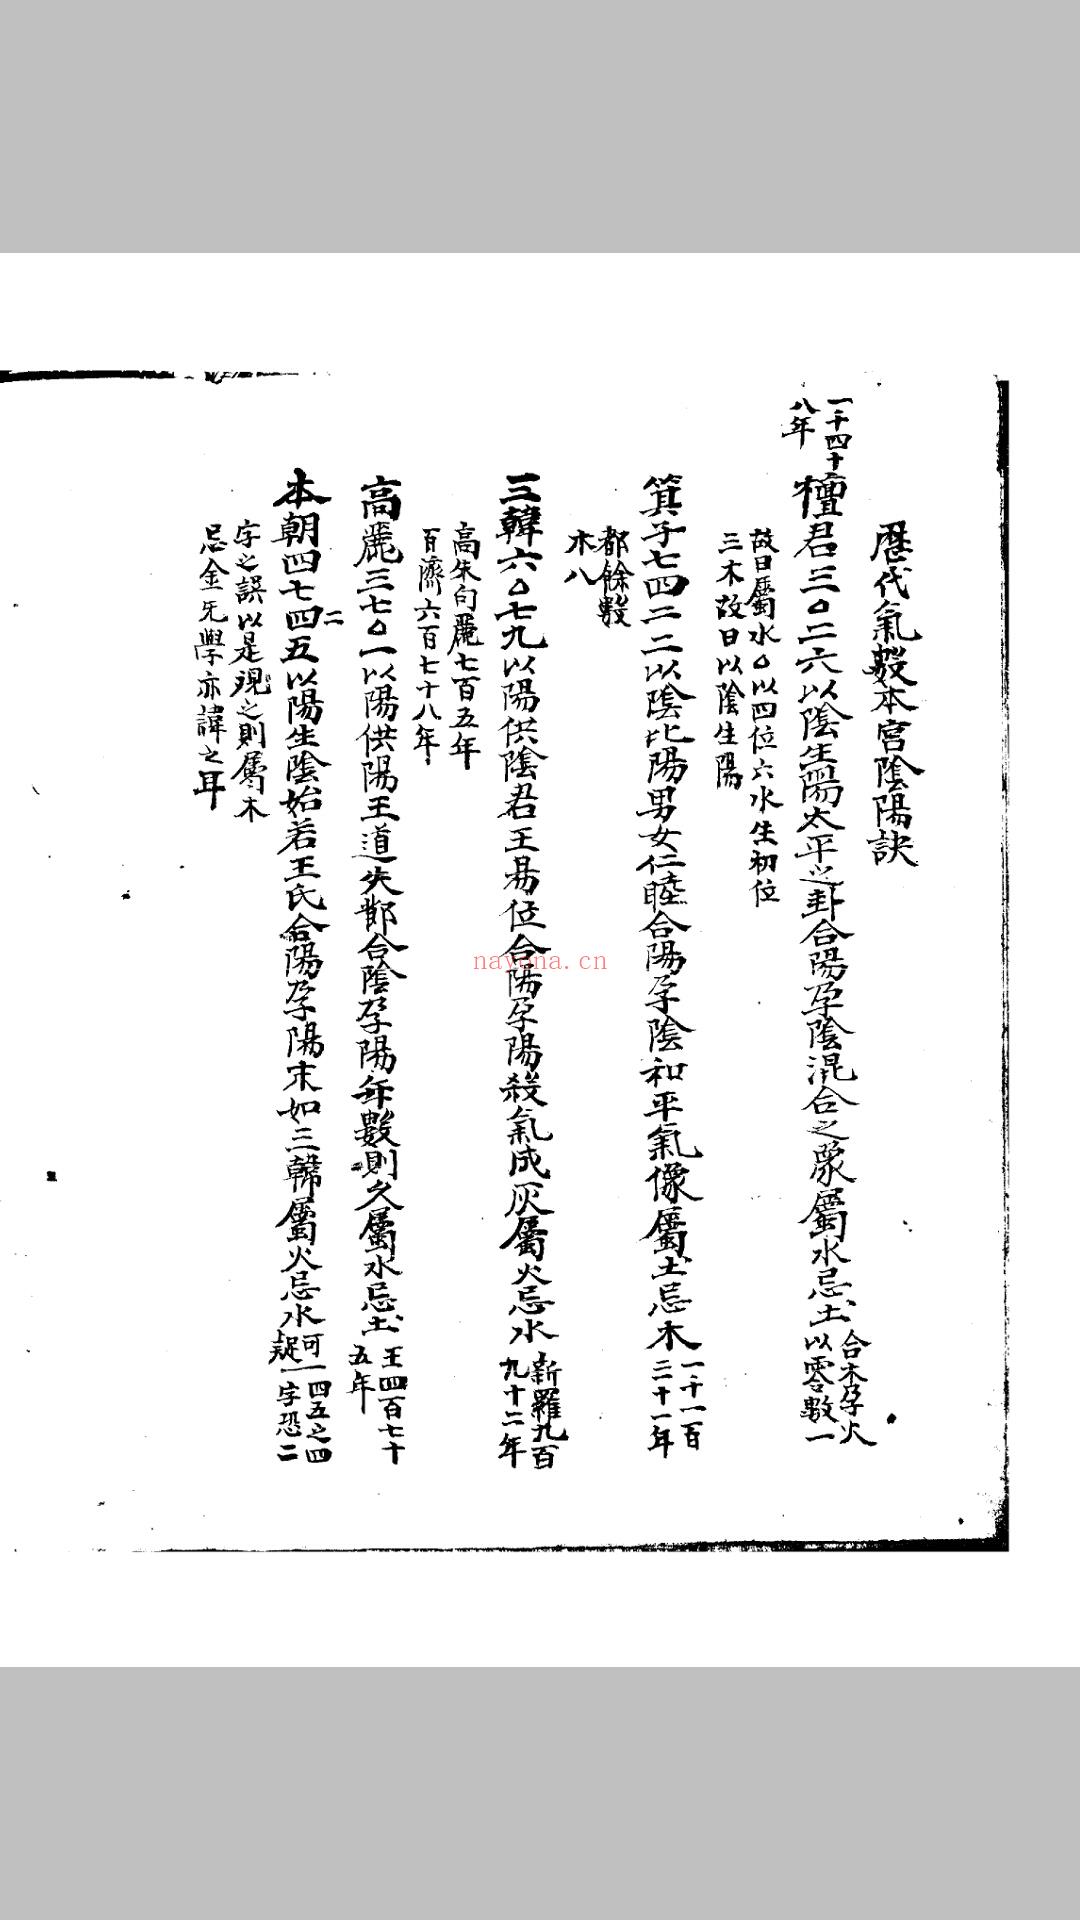 歷代氣數本宮陰陽訣
一千四十
八年
檀君三〇二六以陰生陽太平之卦合陽孕陰混合之象屬水忌土
合木孕火
以零數一
故曰屬水〇以四位六水生初位
三木故曰以陰生陽
箕子七四二二以陰比陽男女仁睦合陽孕陰和平氣像屬土忌木
一千一百
二十一年
都餘數
木八
三韓六〇七九以陽供陰君王易位合陽孕陽殺氣成灰屬火忌水
新羅九百
九十二年
高朱句麗七百五年
百濟六百七十八年
高麗三七〇一以陽供陽王道失都合陰孕陽年數則久屬水忌土
王四百七十
五年
本朝四七四五以陽生陰始若王氏合陽孕陽末如三韓屬火忌水
二
可一四五之四
疑一字恐二
字之誤以是現之則屬木
忌金旡學亦諱之耳
nayona.cn